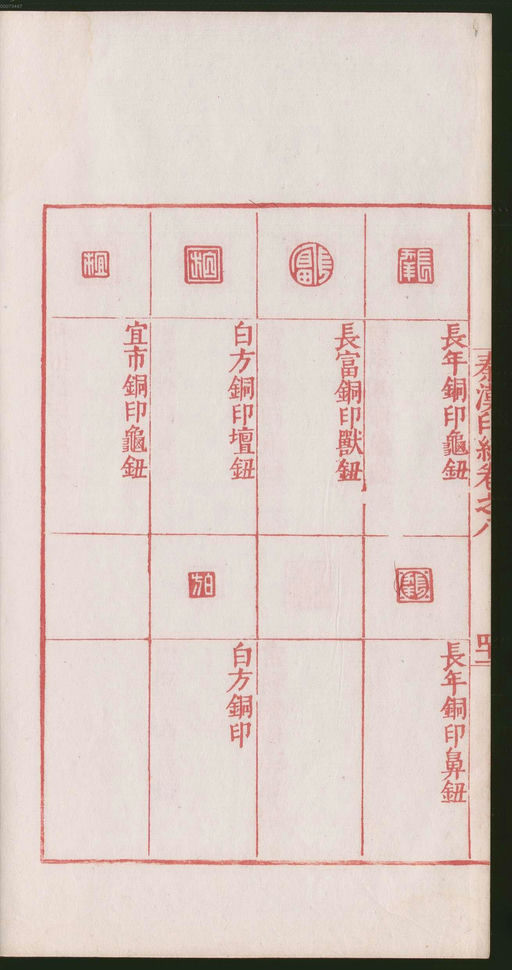 秦漢印統卷之八
四十一
長年銅印龜鈕
長年銅印鼻鈕
長富銅印獸鈕
白方銅印壇鈕
白方銅印
宜市銅印龜鈕